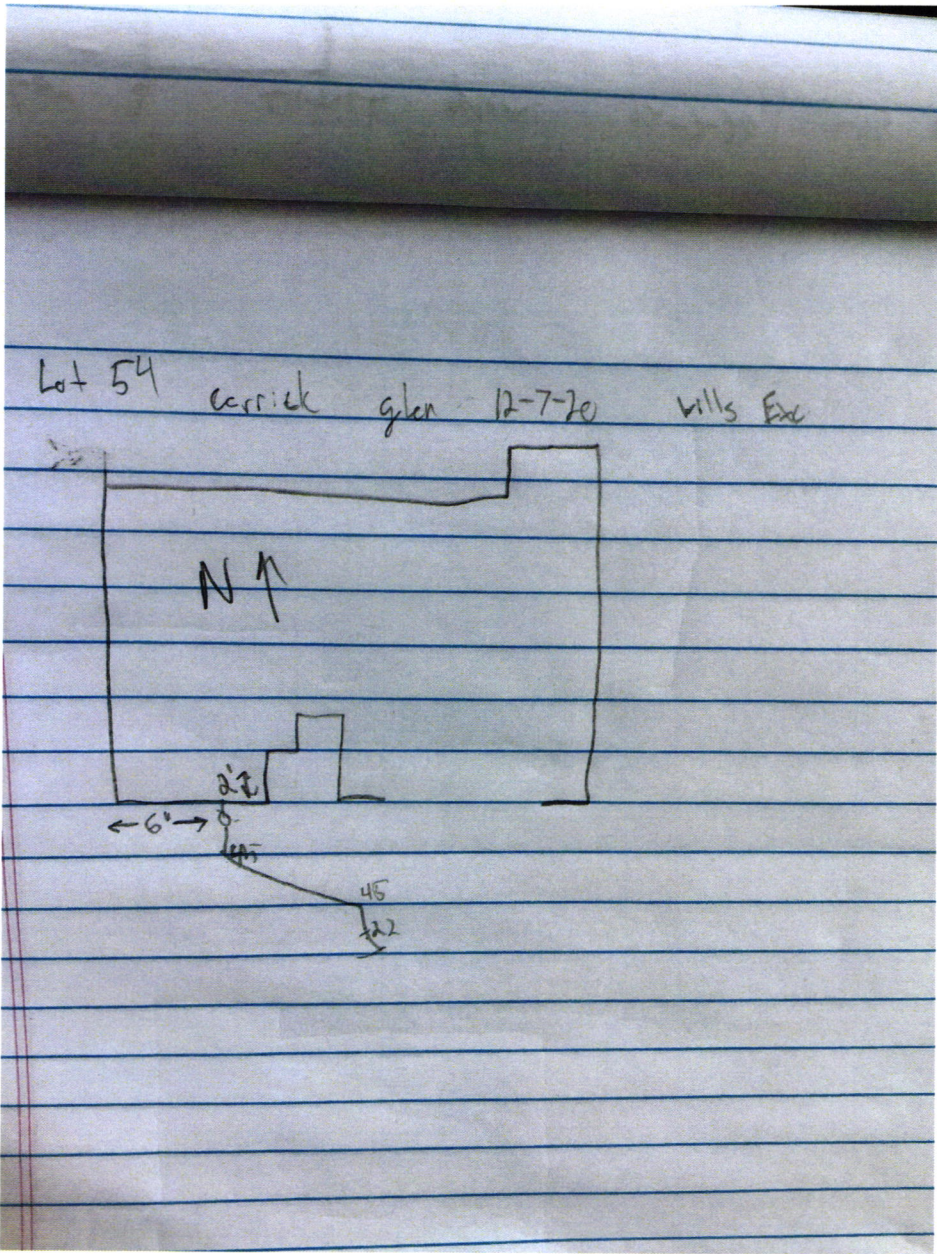 Lot 54 carrick glen 12-7-20 wills Exc
N ↑
2'
← 6" →
45
45
22